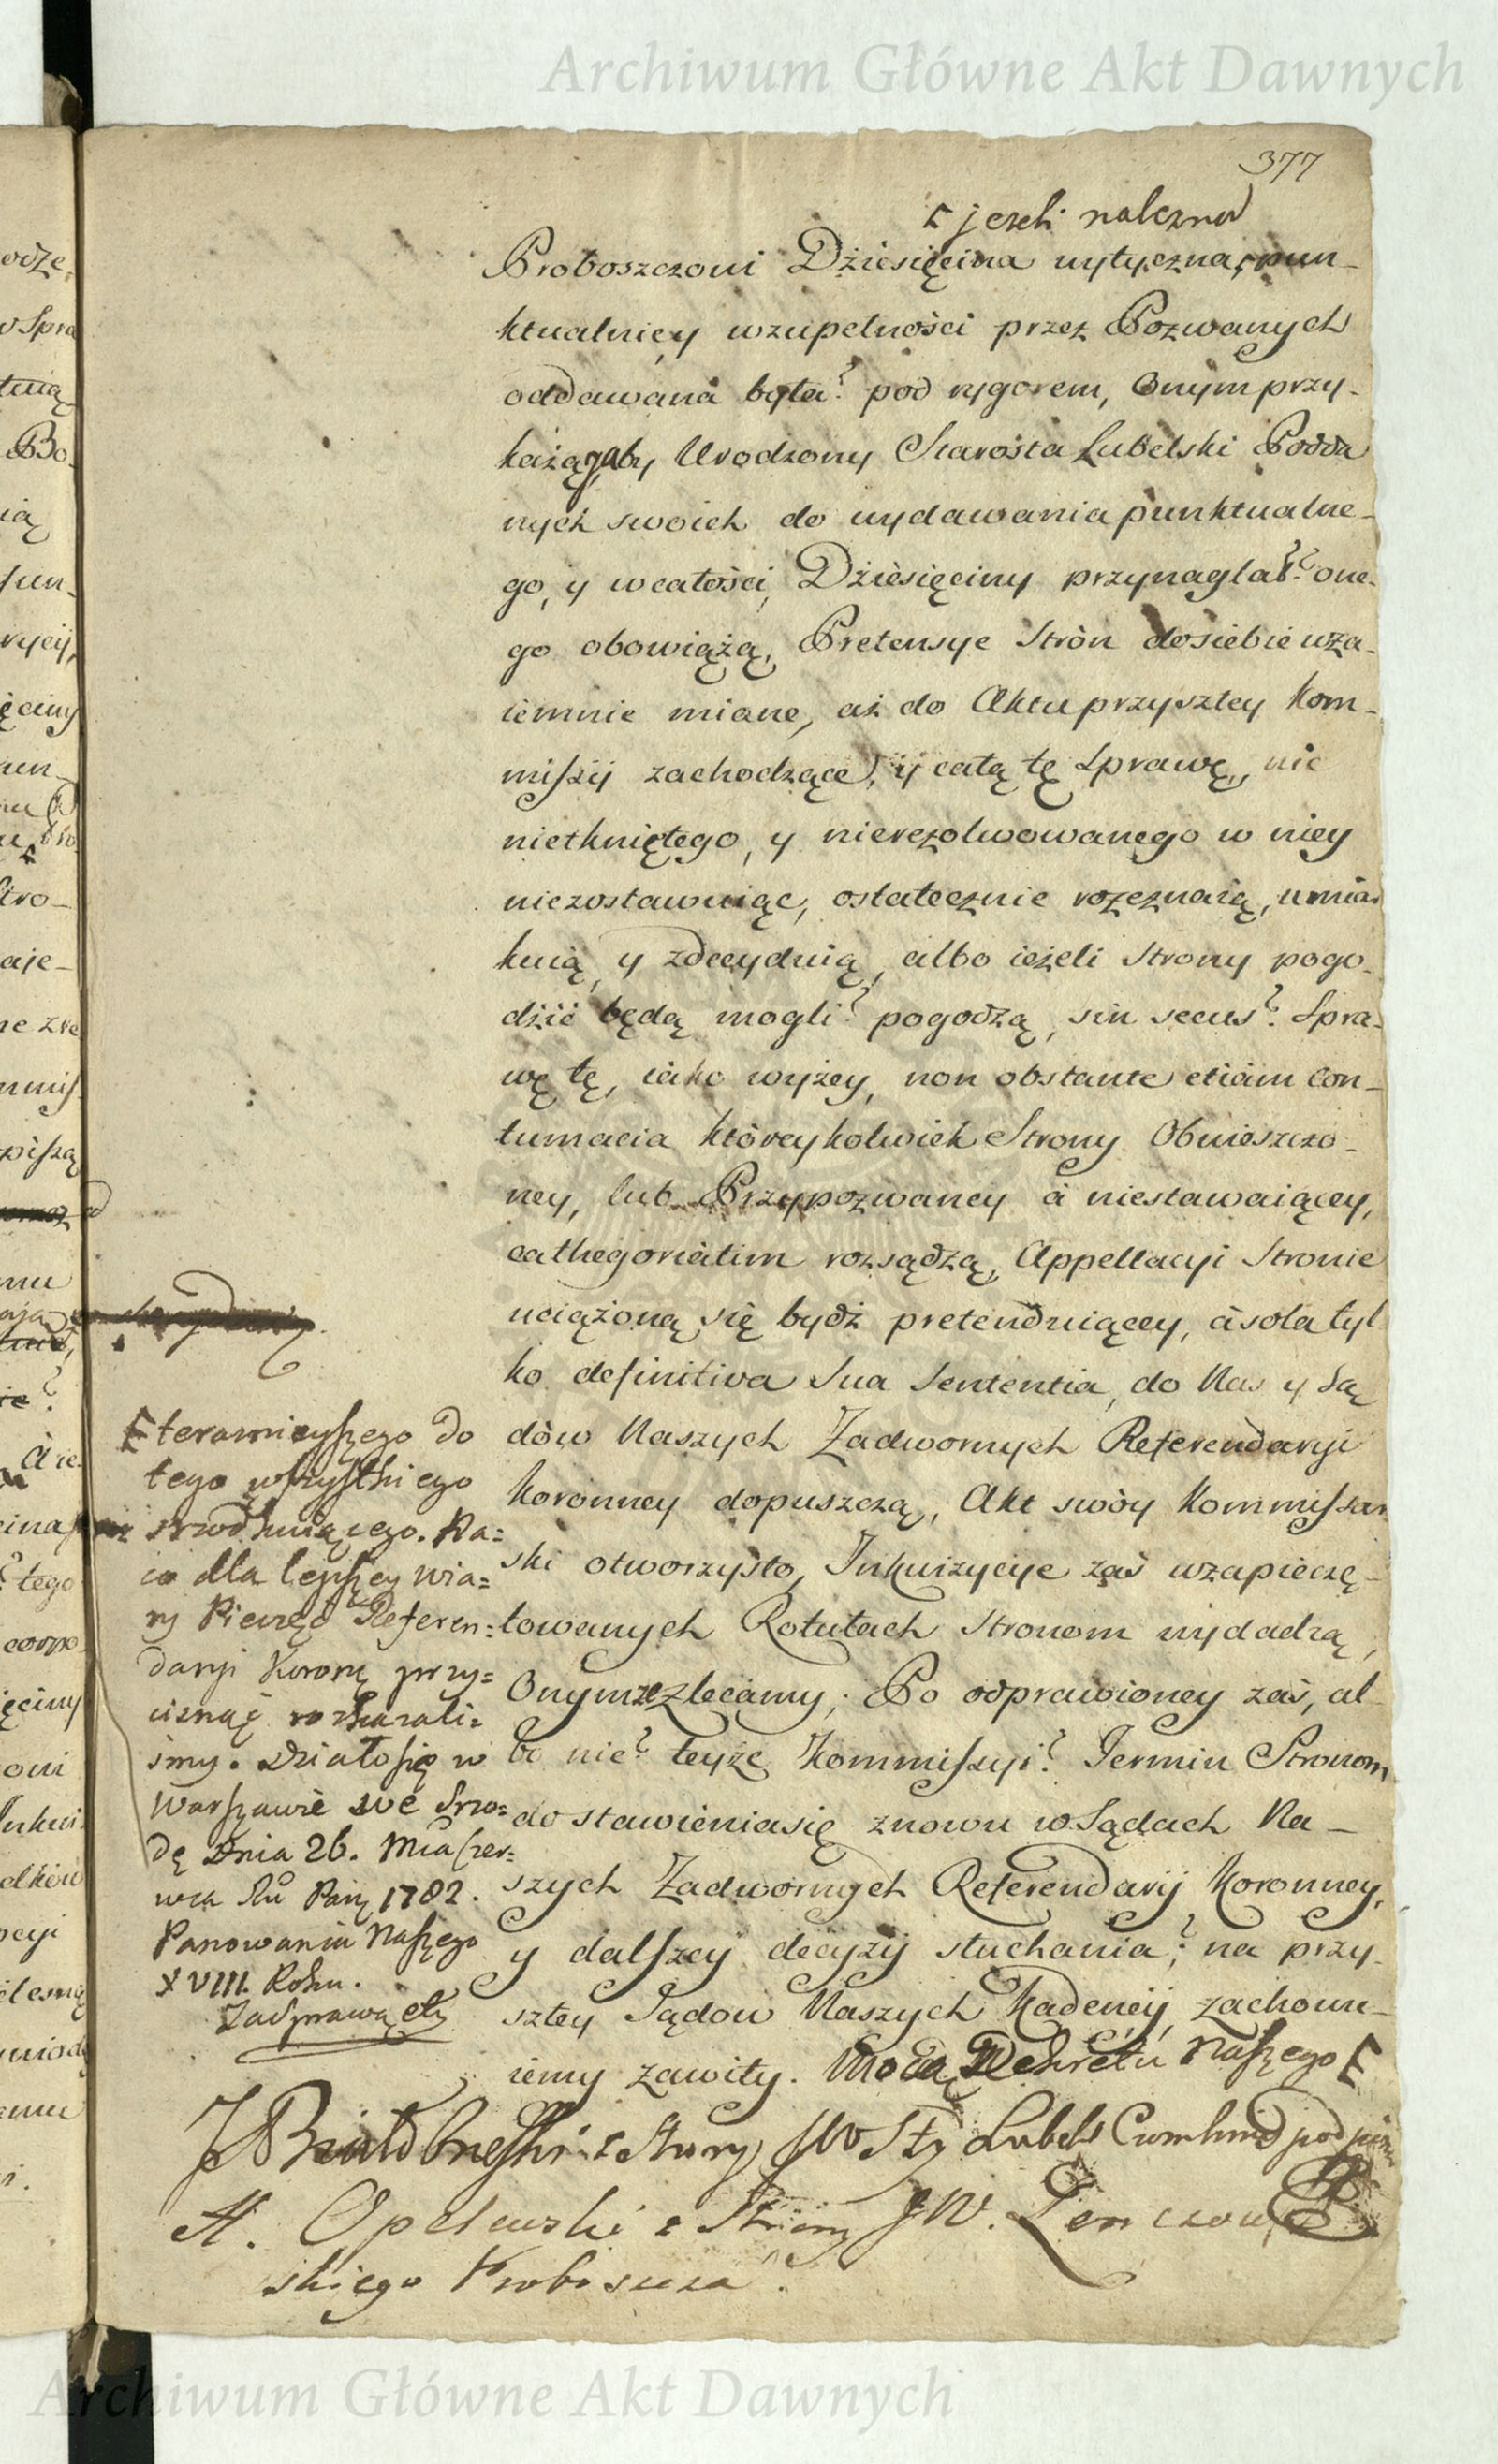 Archiwum Główne Akt Dawnych
377
jezeli nalezna
Proboszczowi Dźiesięcina wytyczna, pun-
ktualniey wzupełności przez Pozwanych
oddawana była? pod rygorem, Onym przy-
każą, aby Urodzony Starosta Lubelski Podda
nych swoich do wydawania punktualne-
go, y wcałości, Dźiesięciny przynaglał? one-
go obowiążą, Pretensye Strón dosiebie wza-
iemnie miane, aż do Aktu przyszłey Kom-
mißyi zachodzące, y całą tę Sprawę, nic
nietkniętego, y nierezolwowanego w niey
niezostawuiąc, ostatecznie rozeznaią, umiar
kuią, y zdecyduią, albo ieżeli Strony pogo-
dźić będą mogli? pogodzą, sin secus? Spra-
wę tę, iako wyżey, non obstante etiam Con-
tumacia któreykolwiek Strony Obwieszczo-
ney, lub Przypozwaney à niestawaiącey,
cathegoriatim rozsądzą, Appellacyi Stronie
uciążoną się bydź pretenduiącey, à sola tyl
ko definitiva Sua Sententia, do Nas y Są
dów Naszych Zadwornych Referendaryi
Koronney dopuszczą, Akt swóy Kommißar
ski otworzysto, Inkwizycye zaś wzapieczę-
towanych Rotułach Stronom wydadzą,
Onymze zlecamy; Po odprawioney zaś, al-
bo nie? teyże Kommißyi? Termin Stronom
do stawienia się znowu w Sądach Na-
szych Zadwornych Referendaryi Koronney,
y dalszey decyzyi słuchania; na przy-
szłey Sądow Naszych Kadencyi, zachowu-
iemy zawity. Mocą Dekretu Naszego
teraznieyszego do
tego wszystkiego
Na=
co dla lepszey wia=
ry Pieczęć Referen=
daryi Korony przy=
cisnąć rozkazali=
smy. Działo się w
Warszawie we Srzo=
dę Dnia 26. Mca Czer=
wca Rů Panʒ 1782.
Panowania Naszego
XVIII. Roku.
Za Sprawą etc
z Strony JW Sty Lubels podpisu
A. Opelewski z Strony JW. Lenczow
skiego Proboszcza
Archiwum Główne Akt Dawnych